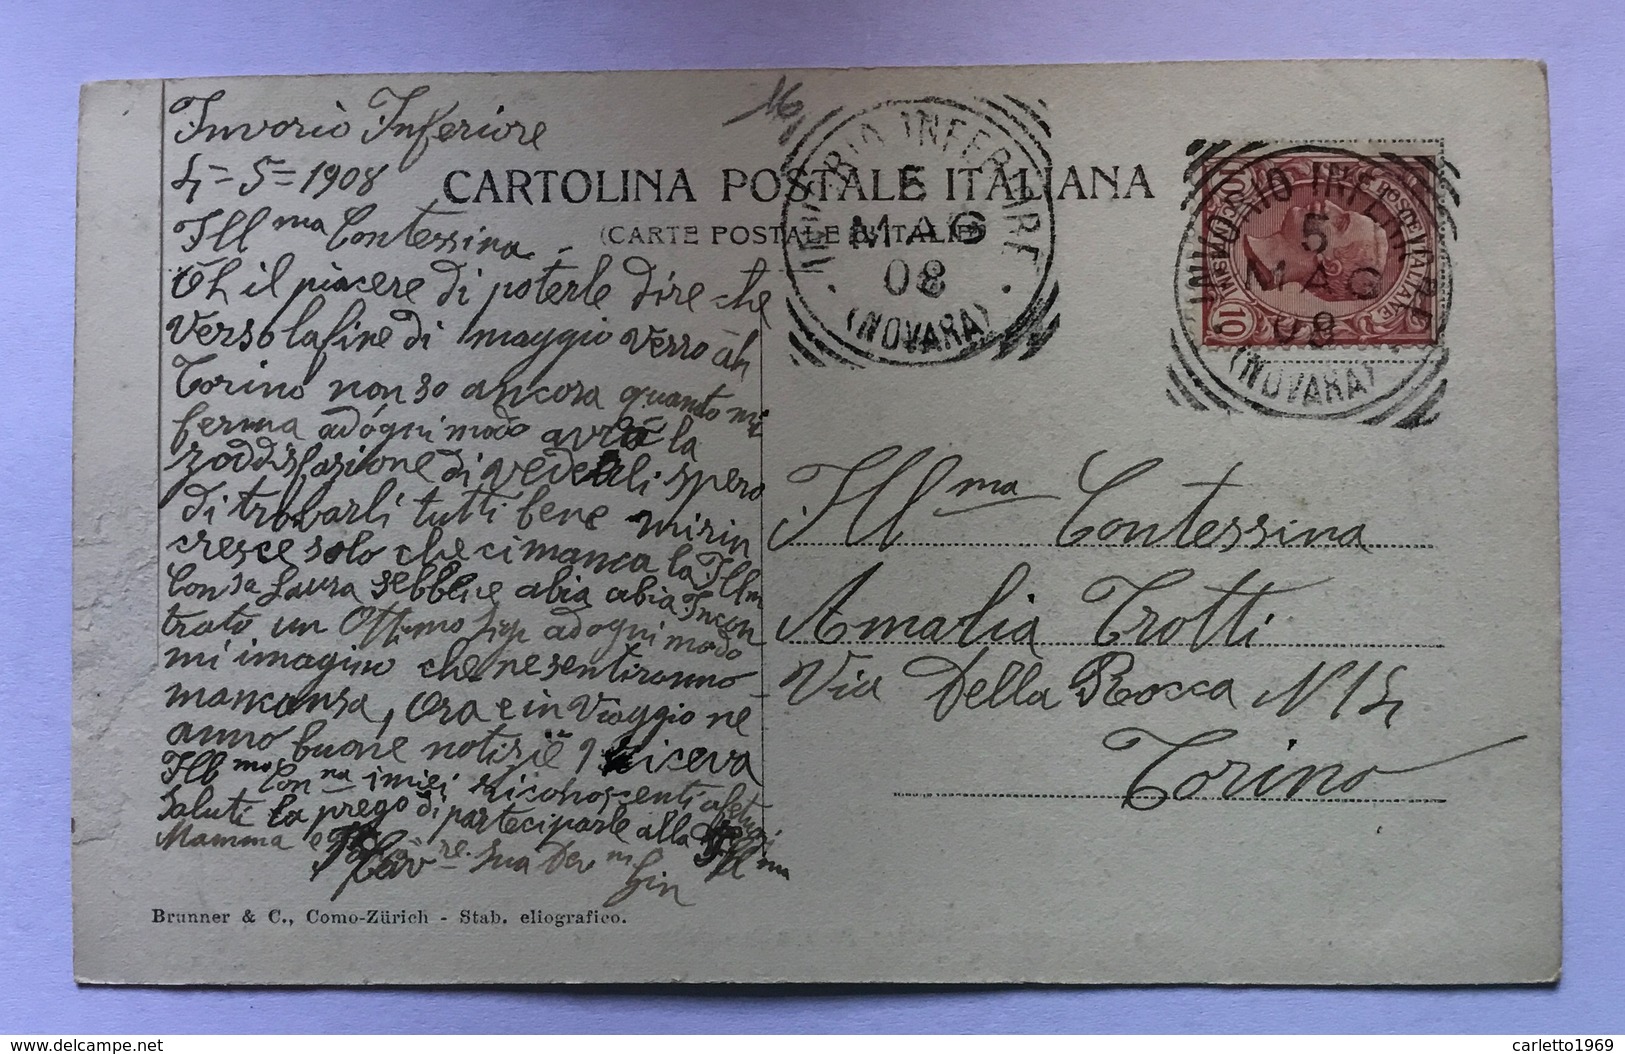 Invorio Inferiore
4=5=1908
CARTOLINA POSTALE ITALIANA
(CARTE POSTALE D'ITALIE)
Ill ma Contessina
ôh il piacere di poterle dire che
verso la fine di maggio verrò âh
Torino non so ancora quanto mi
ferma adógni modo avrò la
soddisfazione di vederli spero
di trovarli tutti bene mirin
cresce solo che ci manca la Illm
Consa Laura sebbene abia abia Incon
trato un Ottimo adogni modo
mi imagino che ne sentiranno
mancansa, Ora e in Viaggio ne
anno buone notizie riceva
Ill ma Con na i miei riconoscenti afetuosi
saluti la prego di partecipare alla
Mamma e Ill ma
sua Dev m
Brunner & C., Como-Zürich - Stab. eliografico.
INVORIO INFERIORE
5
MAG
08
(NOVARA)
INVORIO INFERIORE
5
MAG
08
(NOVARA)
POSTE ITALIANE
10
10
Ill ma Contessina
Amalia Trotti
Via Della Rocca N 14
Torino
www.delcampe.net
carletto1969